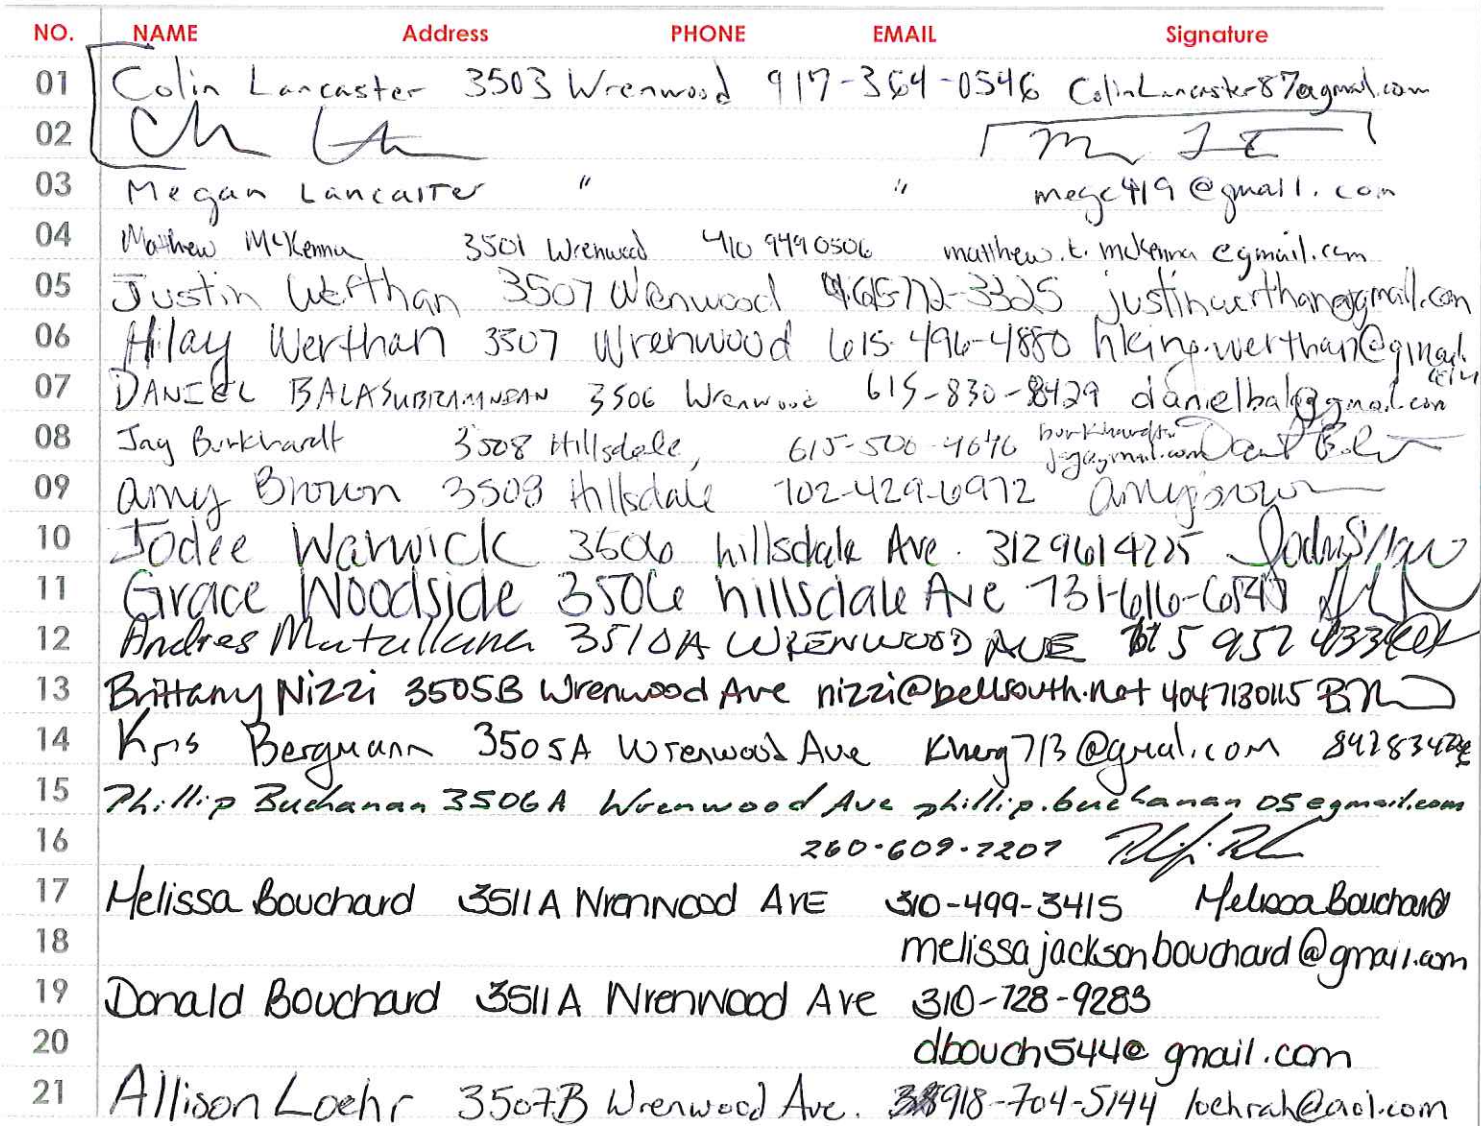 NO. NAME Address PHONE EMAIL Signature
01 Colin Lancaster 3503 Wrenwood 917-364-0546 ColinLancaster87@gmail.com
02
03 Megan Lancaster " " megc419@gmail.com
04 Matthew McKenna 3501 Wrenwood 410 949 0506 matthew.t.mckenna@gmail.com
05 Justin Werthan 3507 Wrenwood 615-772-3325 justinwerthan@gmail.com
06 Hilary Werthan 3507 Wrenwood 615-496-4880 hking.werthan@gmail.com
07 DANIEL 3506 Wrenwood 615-830-8429 danielbala@gmail.com
08 Jay Burkhardt 3508 Hillsdale, 615-500-4646
09 Amy Brown 3508 Hillsdale 702-429-6972 Amy Brown
10 Jodee Warwick 3506 hillsdale Ave. 3129614225
11 Grace Woodside 3506 hillsdale Ave
12 Andres 3510A WRENWOOD AVE
13 Brittany Nizzi 3505B Wrenwood Ave nizzi@bellsouth.net
14 Kris Bergmann 3505A Wrenwood Ave
15 Phillip Buchanan 3506A Wrenwood Ave phillip.buchanan05@gmail.com
16 260-609-2207
17 Melissa Bouchard 3511A Wrenwood AVE 310-499-3415 Melissa Bouchard
18 melissajacksonbouchard@gmail.com
19 Donald Bouchard 3511A Wrenwood Ave 310-728-9283
20 dbouch544@gmail.com
21 Allison Loehr 3507B Wrenwood Ave. 918-704-5144 loehrah@aol.com